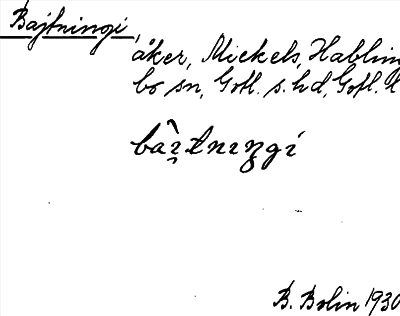 Bajtningi,
åker, Mickels, Hablin
bo sn, Gotl. s. hd, Gotl. l
baı̯̂tnıŋgi
B. Bolin 1930